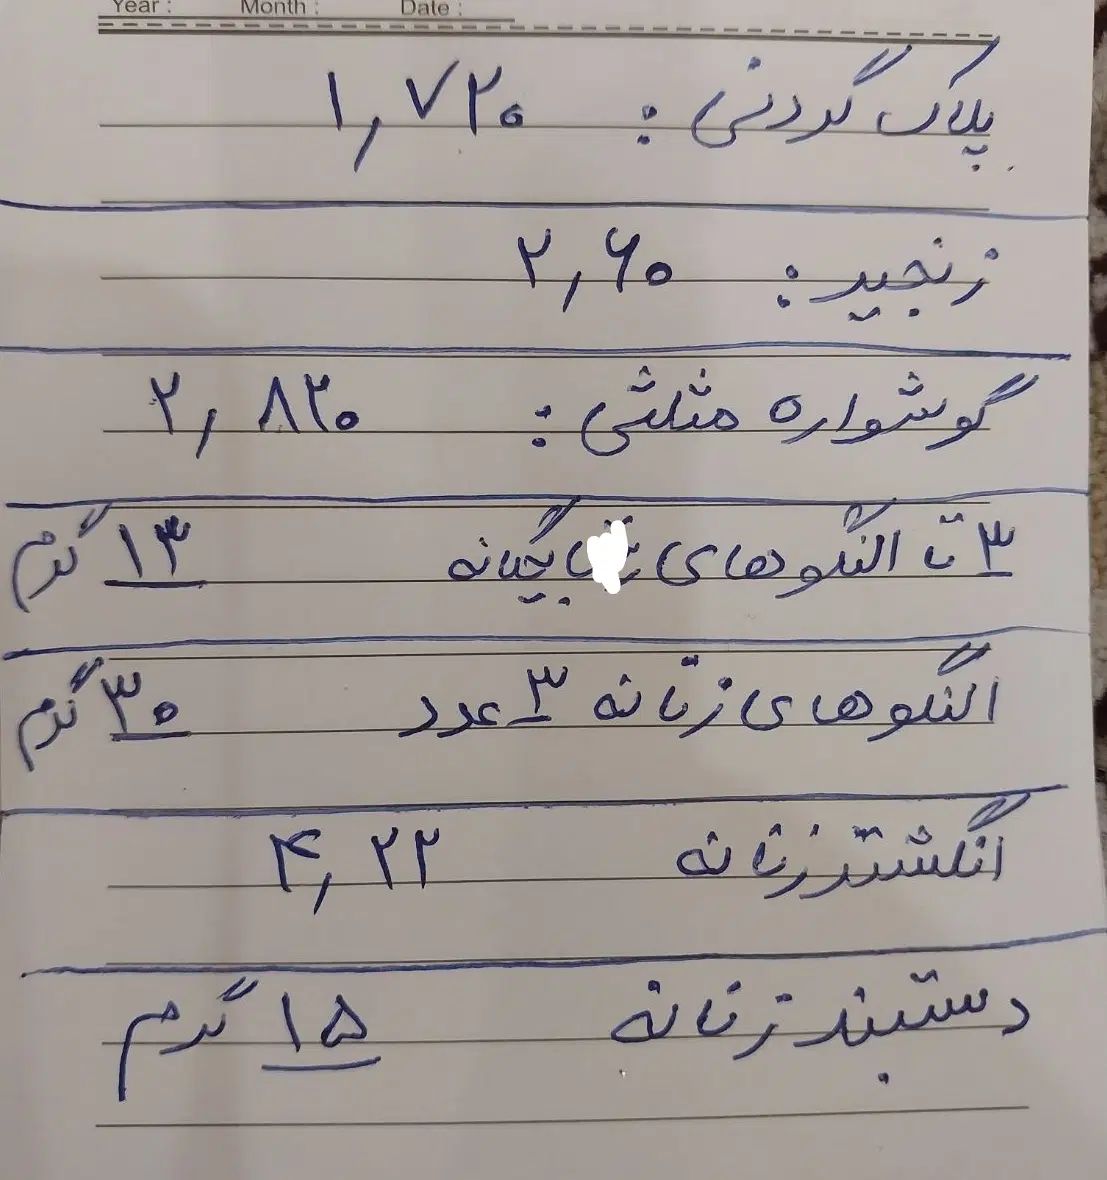 Year : Month : Date :
پلاک گردنی : ۱,۷۲۰
زنجیر : ۲,۶۰
گوشواره مثلثی : ۲,۸۲۰
۳ تا النگوهای بچگانه ۱۳ گرم
النگوهای زنانه ۳ عدد ۳۰ گرم
انگشتر زنانه ۴,۲۲
دستبند زنانه ۱۵ گرم